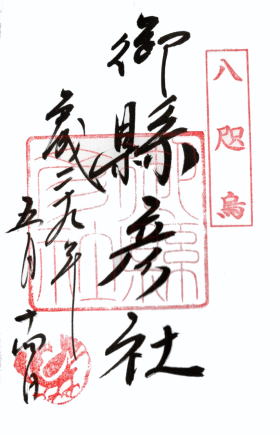 八咫烏
御縣彦社
平成二十九年
五月十四日